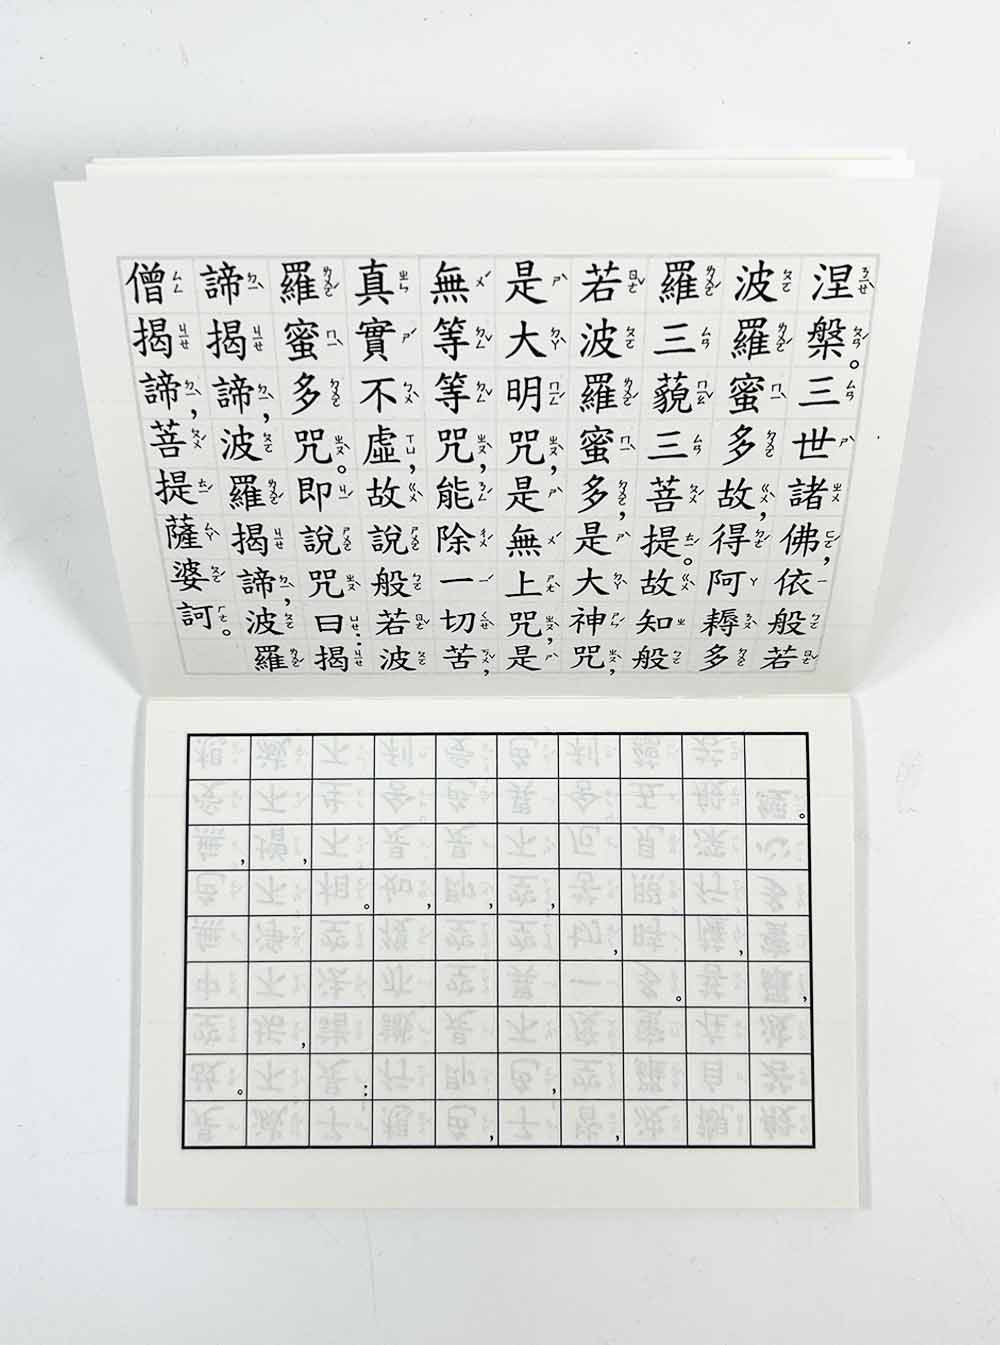 涅槃。三世諸佛，依般若
波羅蜜多故，得阿耨多
羅三藐三菩提。故知般
若波羅蜜多，是大神咒，
是大明咒，是無上咒，是
無等等咒，能除一切苦，
真實不虛，故說般若波
羅蜜多咒。即說咒曰：揭
諦揭諦，波羅揭諦，波羅
僧揭諦，菩提薩婆訶。